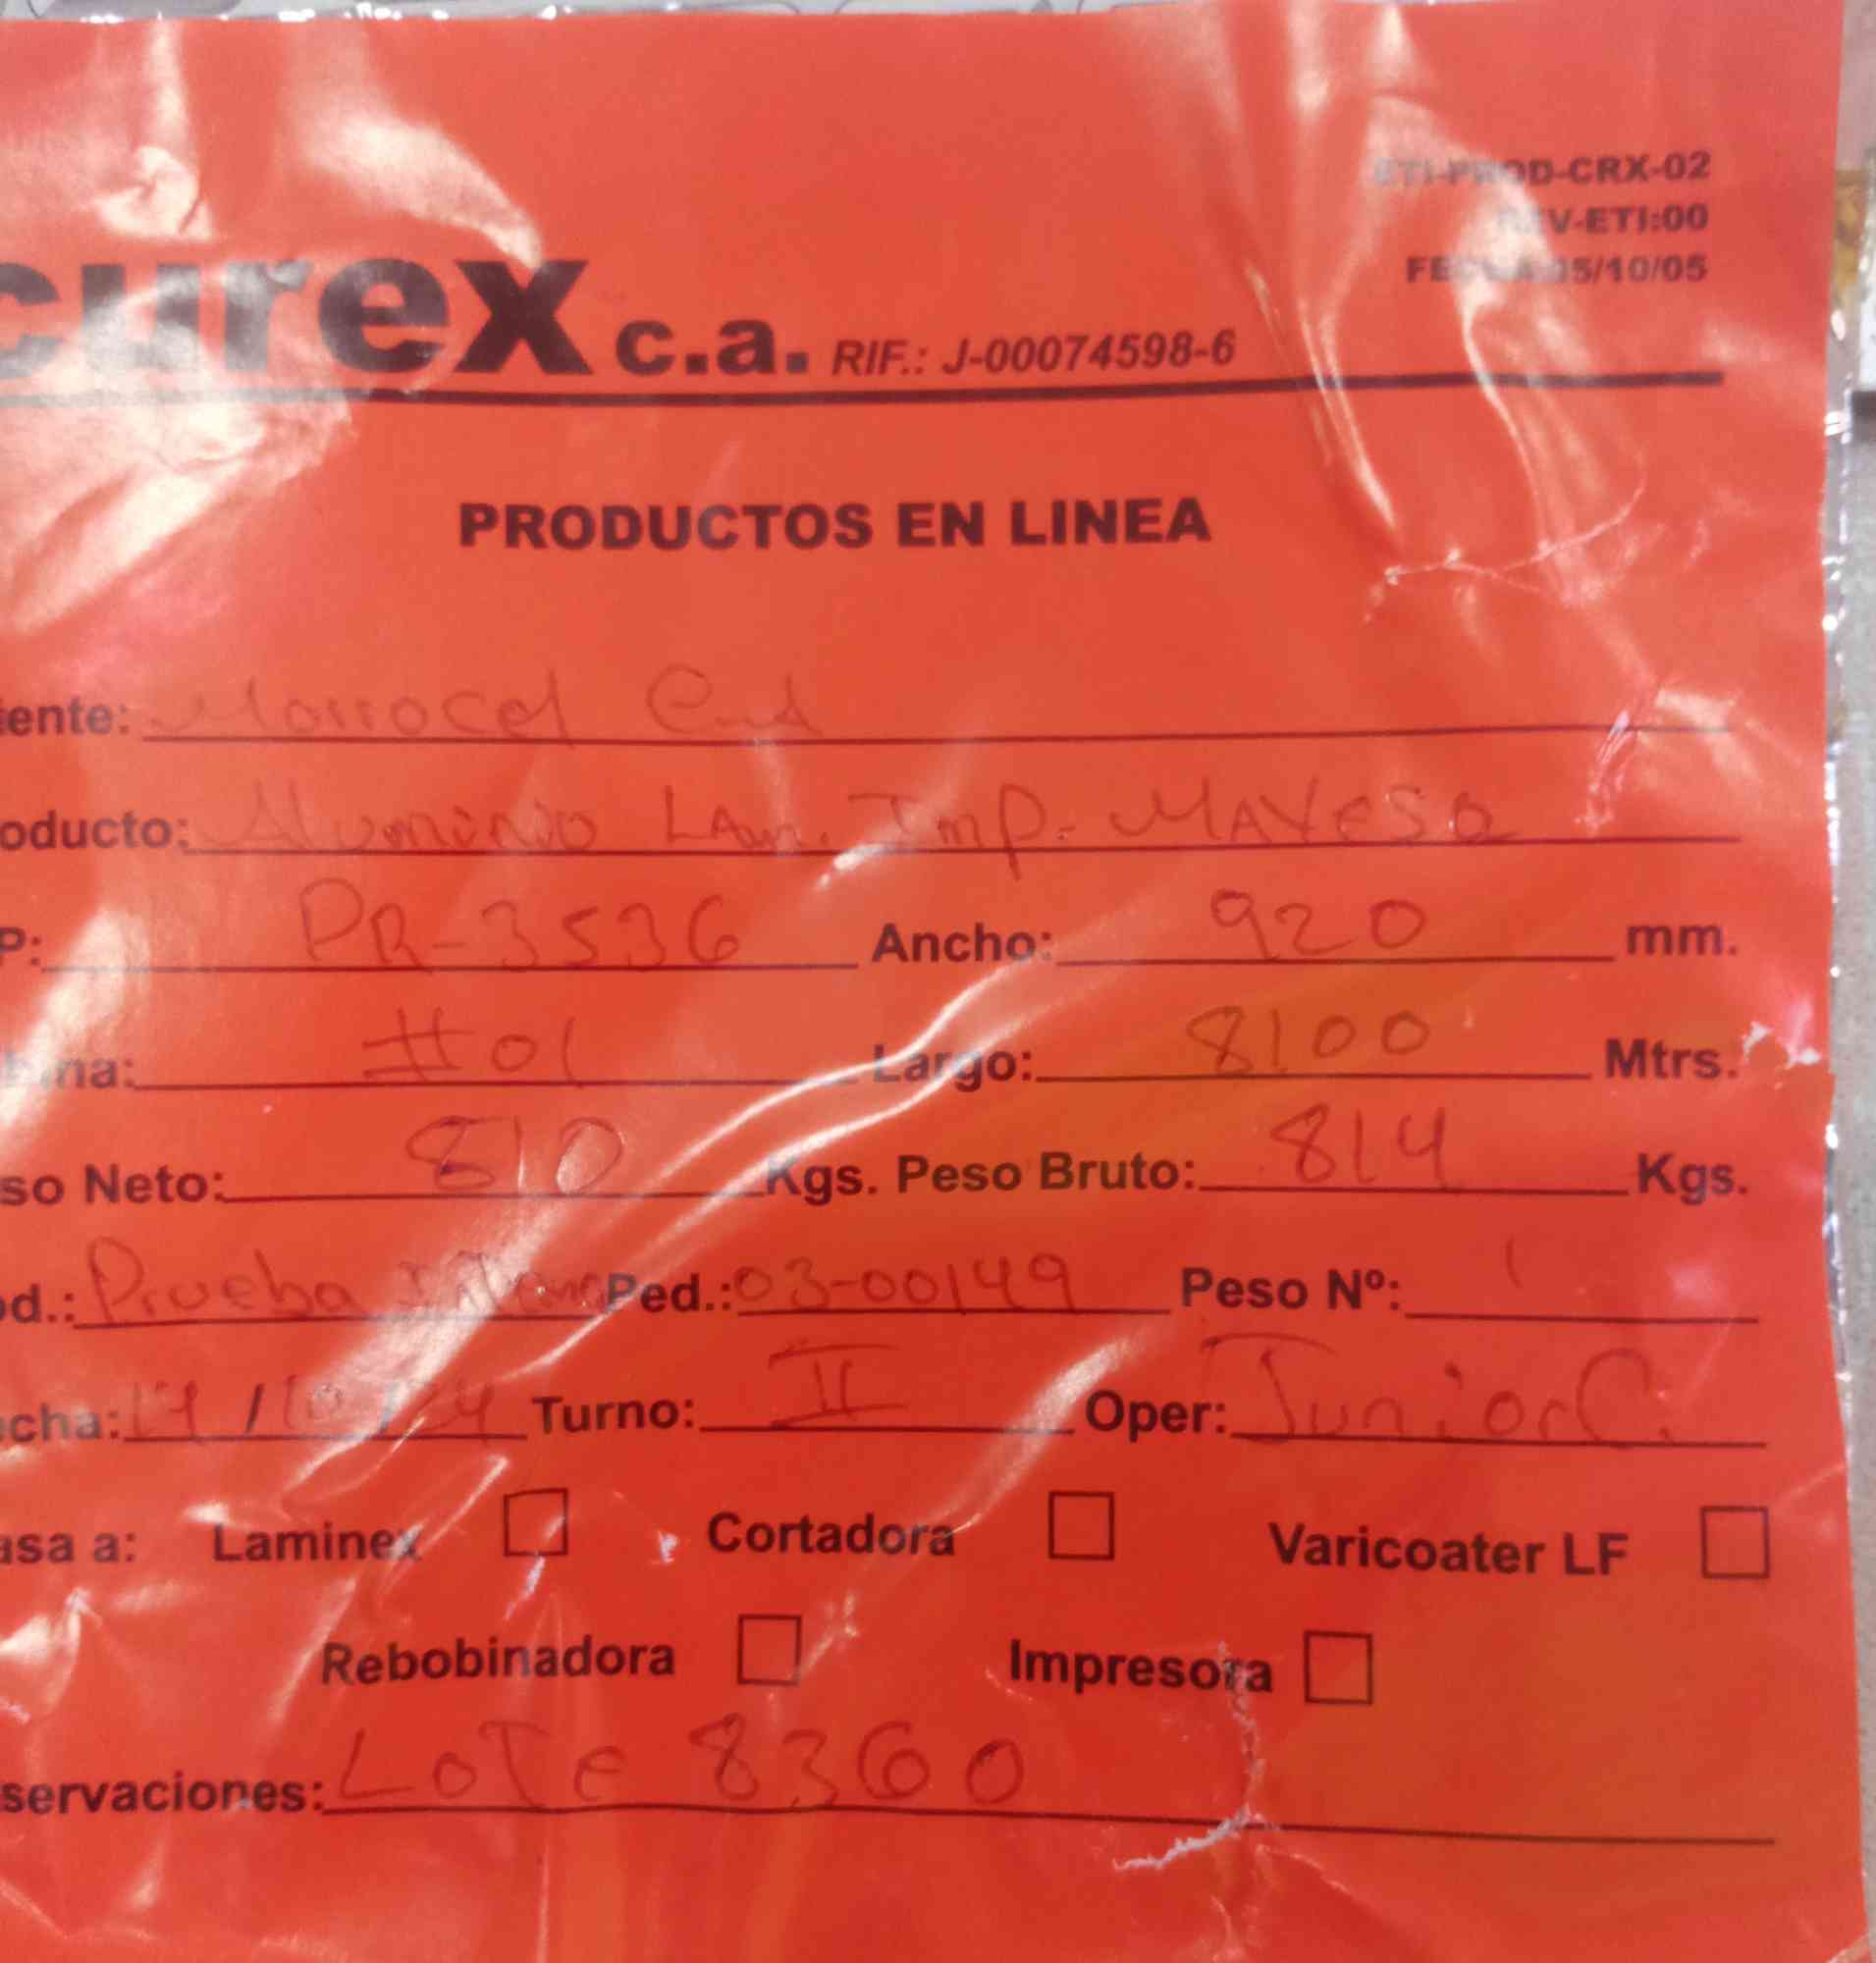 ETI-PROD-CRX-02
REV-ETI:00
FECHA:05/10/05
curex c.a. RIF.: J-00074598-6
PRODUCTOS EN LINEA
iente:
oducto: Aluminio LAm. Imp. MAVESA
P: PR-3536 Ancho: 920 mm.
bina: #01 Largo: 8100 Mtrs.
so Neto: 810 Kgs. Peso Bruto: 814 Kgs.
od.: Prueba Ped.: 03-00149 Peso Nº: 1
echa: /10/24 Turno: II Oper: Junior C.
asa a: Laminex Cortadora Varicoater LF
Rebobinadora Impresora
servaciones: LoTe 8360